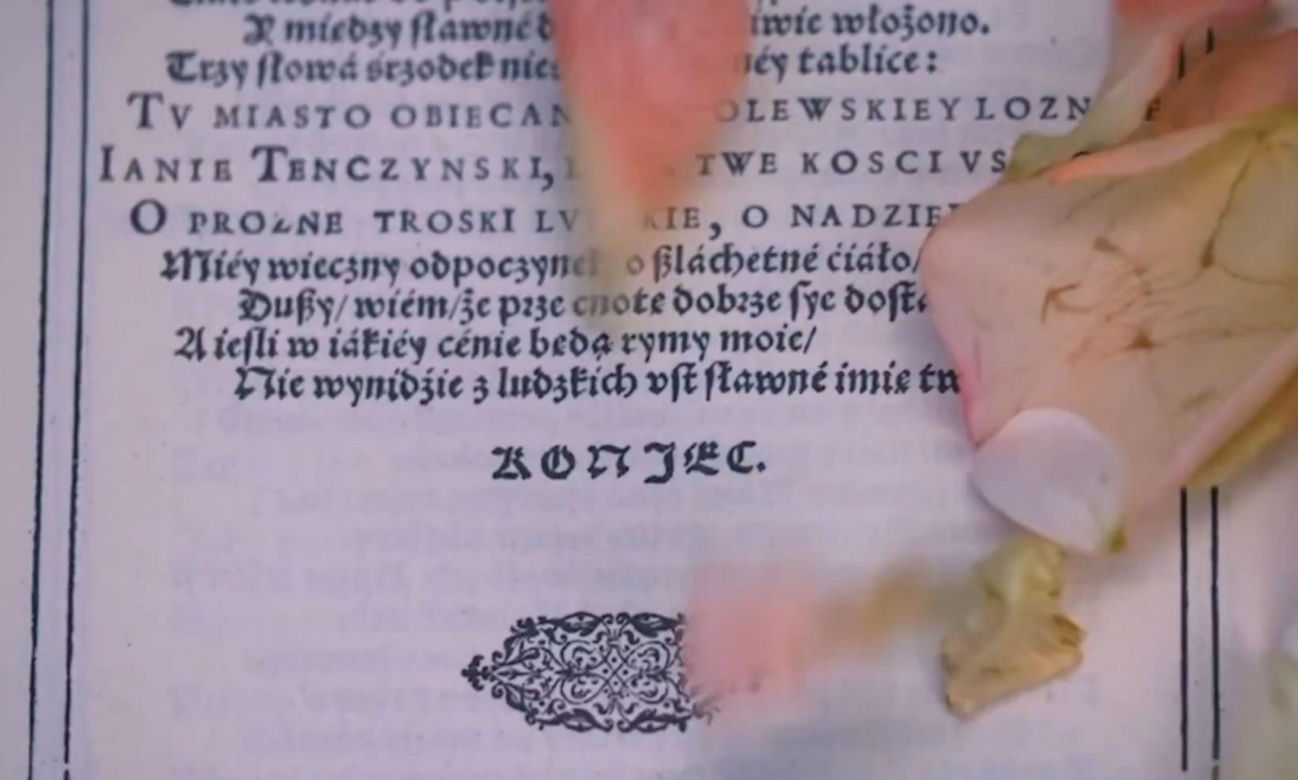 Y między sławné wie włożono.
Trzy słowá śrzodek tablice:
TV MIASTO OBIECAN OLEWSKIEY LOZN
IANIE TENCZYNSKI, TWE KOSCI VS
O PROZNE TROSKI LV KIE, O NADZIE
Miéy wieczny odpoczynek o ßláchetné ćiáło/
Dußy/ wiém/że prze cnotę dobrze syć dost
A iesli w iákiéy cénie będą rymy moie/
Nie wynidźie z ludzkich vst sławné imię tw
KONIEC.